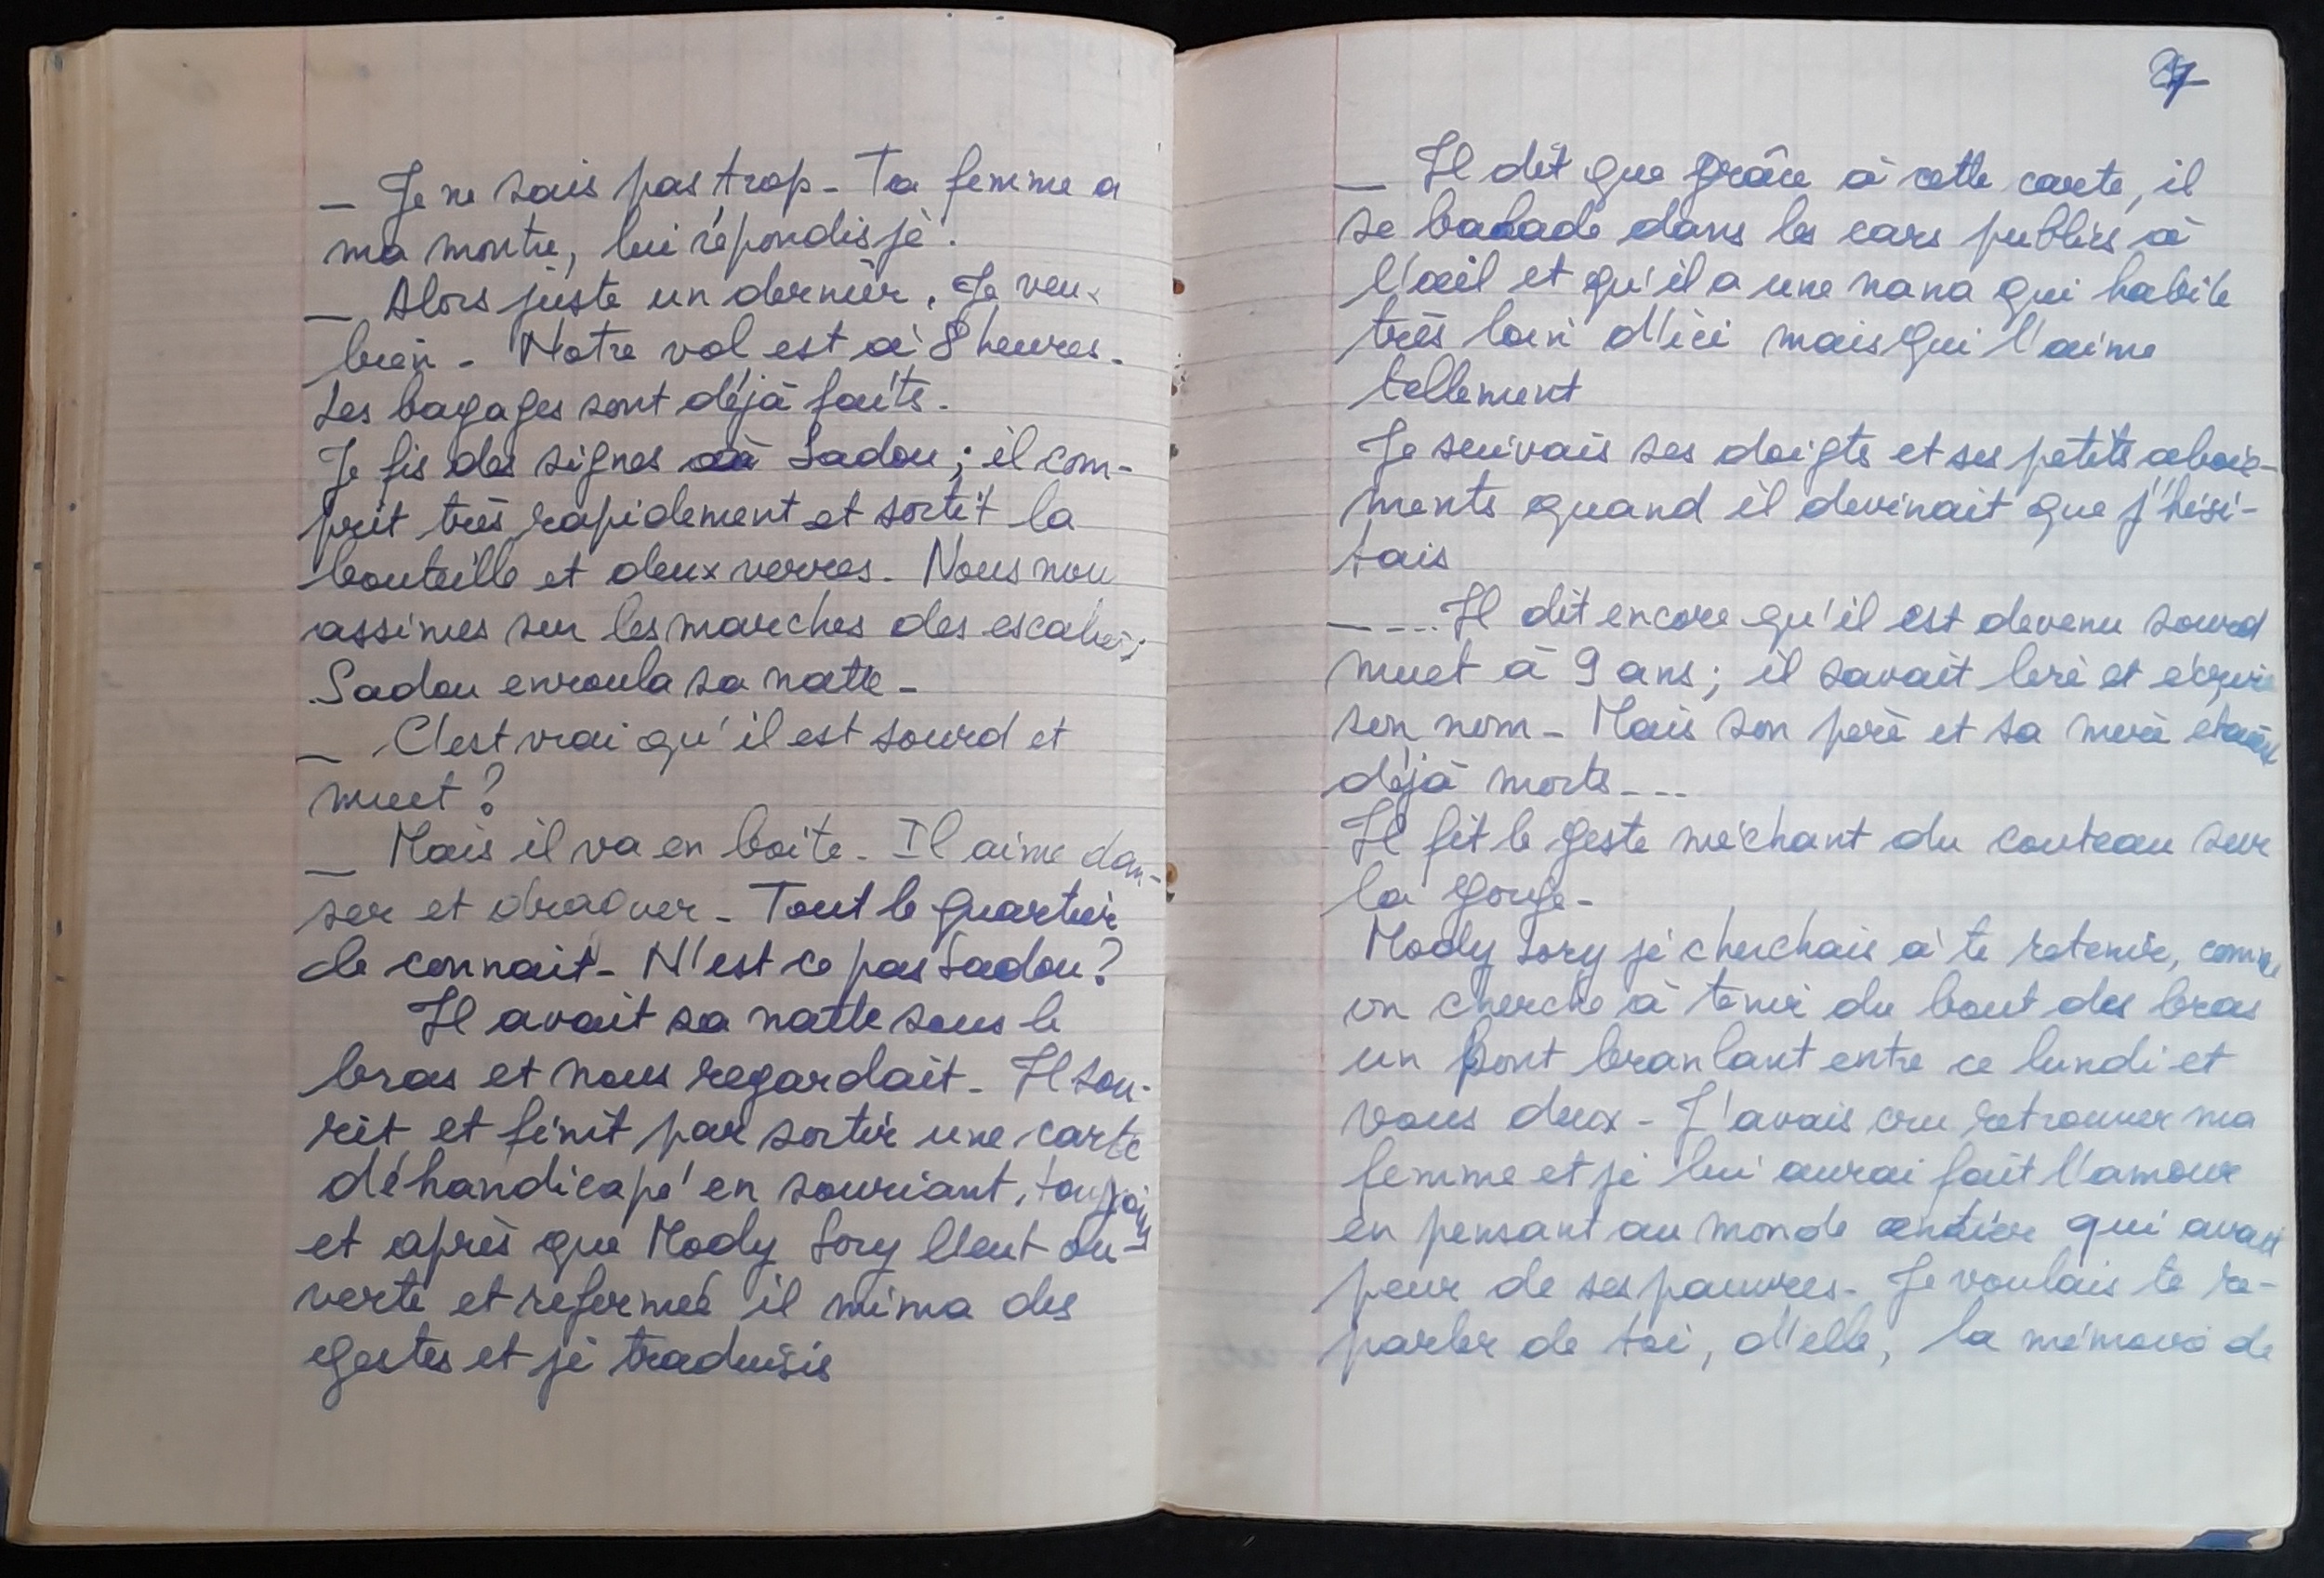 _ Je ne sais pas trop - Ta femme a
ma montre, lui répondis je.
_ Alors juste un dernier. Je veux
bien - Notre vol est à 8 heures -
Les bagages sont déjà faits.
Je fis des signes à Sadou ; il com-
prit très rapidement et sortit la
bouteille et deux verres. Nous nou
assimes sur les marches des escaliers
Sadou enroula sa natte -
_ C'est vrai qu'il est sourd et
muet ?
_ Mais il va en boite - Il aime dan-
ser et draguer - Tout le quartier
le connait - N'est ce pas Sadou ?
Il avait sa natte sous le
bras et nous regardait - Il sou-
rit et finit par sortir une carte
déhandicapé en souriant, toujours
et après que Mody Sory l'eut ou-
verte et refermée il mima des
gestes et je traduisis
27
_ Il dit que grâce à cette carte, il
se balade dans les cars publics à
l'œil et qu'il a une nana qui habite
très loin d'ici mais qui l'aime
tellement
Je suivais ses doigts et ses petits aboie-
ments quand il devinait que j'hési-
tais
_ ... Il dit encore qu'il est devenu sourd
muet à 9 ans ; il savait lire et écrire
son nom - Mais son père et sa mère étaient
déjà morts ---
Il fit le geste méchant du couteau sur
la gorge -
Mody Sory je cherchais à te retenir, comme
on cherche à tenir du bout des bras
un pont branlant entre ce lundi et
vous deux - J'avais cru retrouver ma
femme et je lui aurai fait l'amour
en pensant au monde entier qui avait
peur de ses pauvres - Je voulais te re-
parler de toi, d'elle, la mémoire de